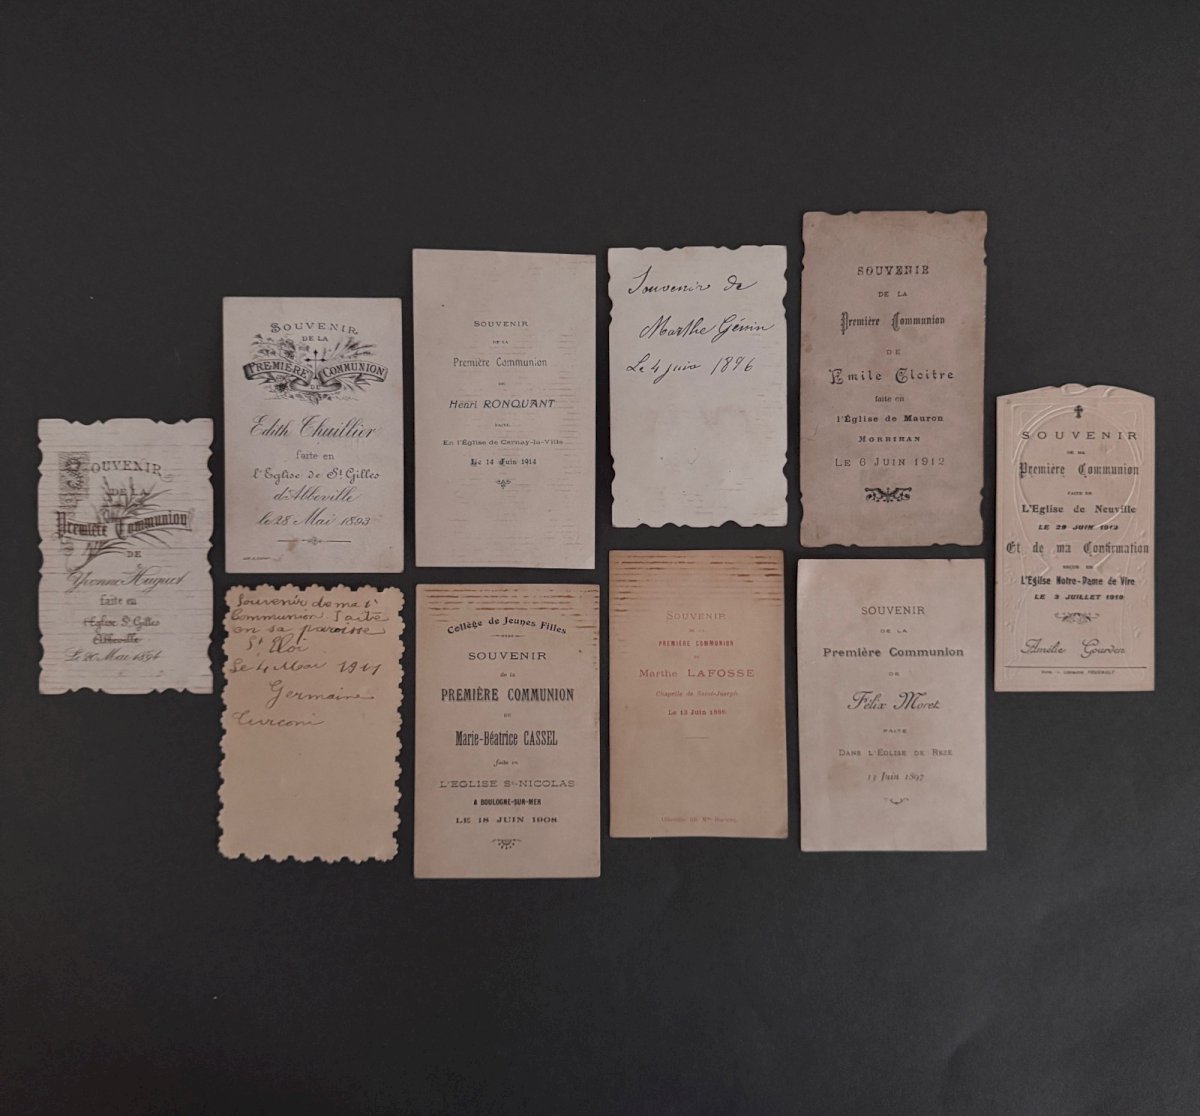 SOUVENIR
DE LA
Première Communion
DE
Yvonne Huguet
faite en
l'Eglise St Gilles
Abbeville
Le 20 Mai 1894
SOUVENIR
DE LA
PREMIÈRE COMMUNION
DE
Edith Thuillier
faite en
l'Eglise de St Gilles
d'Abbeville
le 28 Mai 1893
SOUVENIR
DE LA
Première Communion
DE
Henri RONQUANT
FAITE
En l'Église de Cernay-la-Ville
Le 14 Juin 1914
Souvenir de
Marthe Génin
Le 4 juin 1896
SOUVENIR
DE LA
Première Communion
DE
Emile Cloitre
faite en
l'Église de Mauron
MORBIHAN
LE 6 JUIN 1912
SOUVENIR
DE MA
Première Communion
FAITE EN
L'Eglise de Neuville
LE 29 JUIN
Et de ma Confirmation
REÇUE EN
L'Église Notre-Dame de Vire
LE 3 JUILLET
Amélie Gourden
Souvenir de ma 1e
Communion faite
en sa paroisse
St Eloi
Le 4 Mai
Germaine
Turconi
Collège de Jeunes Filles
SOUVENIR
de la
PREMIÈRE COMMUNION
DE
Marie-Béatrice CASSEL
faite en
L'EGLISE St-NICOLAS
A BOULOGNE-SUR-MER
LE 18 JUIN 1908
SOUVENIR
DE LA
PREMIÈRE COMMUNION
DE
Marthe LAFOSSE
Chapelle de Saint-Joseph
Le 13 Juin
SOUVENIR
DE LA
Première Communion
DE
Félix Moret
FAITE
DANS L'EGLISE DE REZÉ
13 Juin 1897